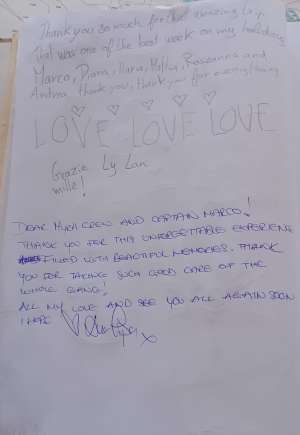 Thank you so much for the amazing
That was one of the best week on my holidays
Marco, Diana, Ilara, Roseanna and
Andrea thank you, thank you for everything
LOVE LOVE LOVE
Grazie Ly Lan
mille!
DEAR CREW AND CAPTAIN MARCO!
THANK YOU FOR THIS UNFORGETTABLE EXPERIENCE
FILLED WITH BEAUTIFUL MEMORIES. THANK
YOU FOR TAKING SUCH GOOD CARE OF THE
WHOLE GANG!
ALL MY LOVE AND SEE YOU ALL AGAIN SOON
I HOPE